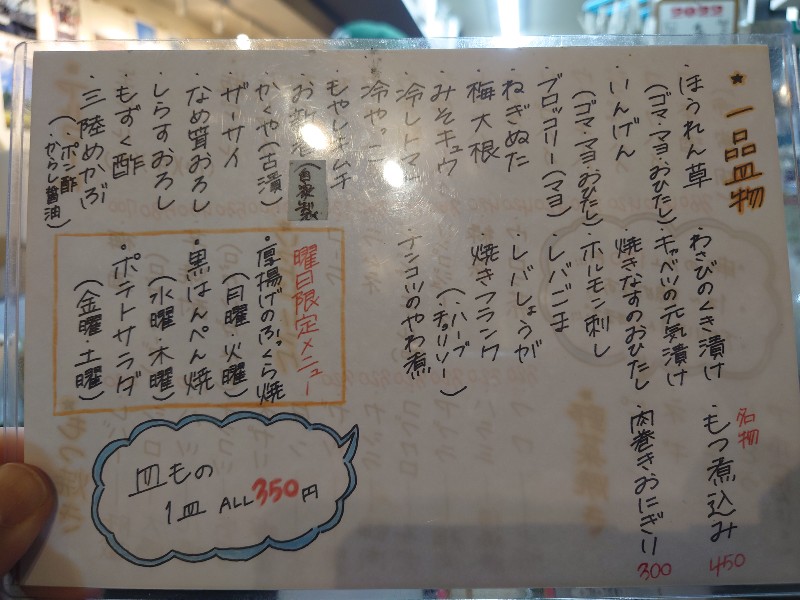 ★一品皿物
・ほうれん草
(ゴマ・マヨ・おひたし)
・いんげん
(ゴマ・マヨ・おひたし)
・ブロッコリー(マヨ)
・ねぎぬた
・梅大根
・みそキュウ
・冷しトマト
・冷やっこ
・もやしキムチ
・お新香(自家製)
・かくや(古漬)
・ザーサイ
・なめ茸おろし
・しらすおろし
・もずく酢
・三陸めかぶ
(・ポン酢
・からし醤油)
・わさびのくき漬け
・キャベツの元気漬け
・焼きなすのおひたし
・ホルモン刺し
・レバごま
・レバしょうが
・焼きフランク
(・ハーブ
・チョリソー)
・ナンコツのやわ煮
名物
・もつ煮込み 450
・肉巻きおにぎり 300
曜日限定メニュー
・厚揚げのふっくら焼
(月曜・火曜)
・黒はんぺん焼
(水曜・木曜)
・ポテトサラダ
(金曜・土曜)
皿もの
1皿 ALL350円
2022